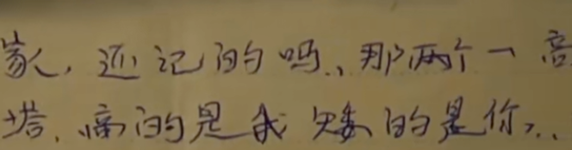 家人，还记的吗，那两个一高
塔，高的是我 矮的是你..